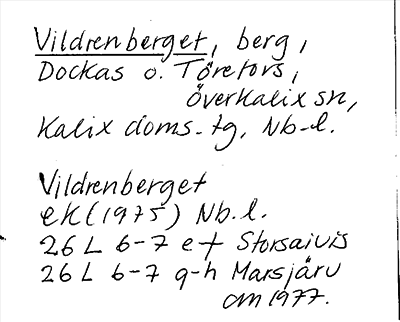 Vildrenberget, berg,
Dockas o. Töretors,
Överkalix sn,
Kalix doms.tg, Nb.l.
Vildrenberget
ek (1975) Nb.l.
26 L 6-7 e-f Storsaivis
26 L 6-7 g-h Marsjärv
am 1977.